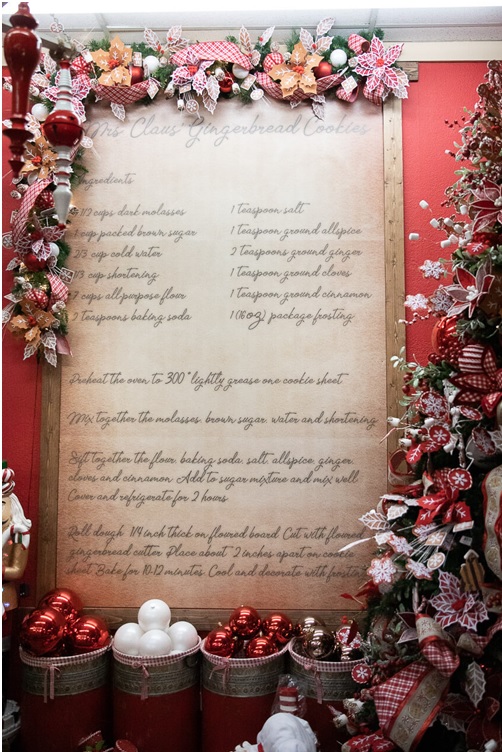 Mrs Claus' Gingerbread Cookies
Ingredients
1/2 cups dark molasses
1 cup packed brown sugar
2/3 cup cold water
1/3 cup shortening
7 cups all-purpose flour
2 teaspoons baking soda
1 teaspoon salt
1 teaspoon ground allspice
2 teaspoons ground ginger
1 teaspoon ground cloves
1 teaspoon ground cinnamon
1 (16oz) package frosting
Preheat the oven to 300° lightly grease one cookie sheet
Mix together the molasses, brown sugar, water and shortening
Sift together the flour, baking soda, salt, allspice, ginger,
cloves and cinnamon. Add to sugar mixture and mix well.
Cover and refrigerate for 2 hours
Roll dough 1/4 inch thick on floured board. Cut with floured
gingerbread cutter. Place about 2 inches apart on cookie
sheet. Bake for 10-12 minutes. Cool and decorate with frosting